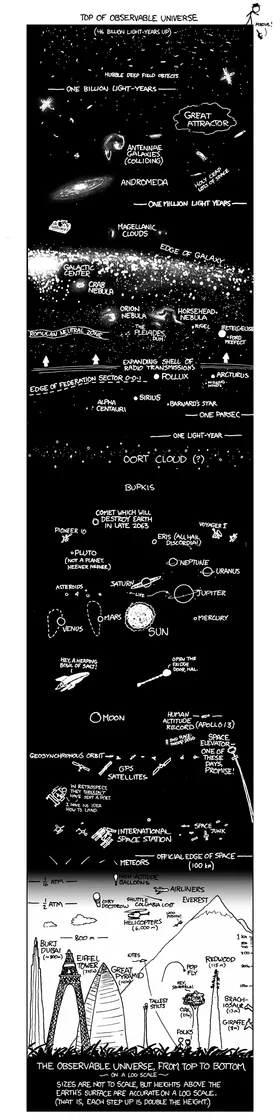 TOP OF OBSERVABLE UNIVERSE
(46 BILLION LIGHT-YEARS UP)
HUBBLE DEEP FIELD OBJECTS
ONE BILLION LIGHT-YEARS
GREAT
ATTRACTOR
ANTENNAE
GALAXIES
(COLLIDING)
HOLY CRAP
LOTS OF SPACE
ANDROMEDA
ONE MILLION LIGHT YEARS
MAGELLANIC
CLOUDS
EDGE OF GALAXY
GALACTIC
CENTER
CRAB
NEBULA
ORION
NEBULA
HORSEHEAD
NEBULA
THE
PLEIADES
RIGEL
BETELGEUSE
ROMULAN NEUTRAL ZONE
FORD
PREFECT
EXPANDING SHELL OF
RADIO TRANSMISSIONS
POLLUX
ARCTURUS
EDGE OF FEDERATION SECTOR 0-0-1
ALPHA
CENTAURI
SIRIUS
BARNARD'S STAR
ONE PARSEC
ONE LIGHT-YEAR
OORT CLOUD (?)
BUPKIS
COMET WHICH WILL
DESTROY EARTH
IN LATE 2063
PIONEER 10
VOYAGER I
ERIS (ALL HAIL
DISCORDIA)
PLUTO
(NOT A PLANET.
NEENER NEENER)
NEPTUNE
URANUS
SATURN
ASTEROIDS
JUPITER
MARS
SUN
MERCURY
VENUS
HEY, A HEAPING
BOWL OF SALT!
OPEN THE
FRIDGE
DOOR, HAL.
MOON
HUMAN
ALTITUDE
RECORD (APOLLO 13)
SPACE
ELEVATOR
ONE OF
THESE
DAYS,
PROMISE!
GEOSYNCHRONOUS ORBIT
GPS
SATELLITES
IN RETROSPECT,
THEY SHOULDN'T
HAVE SENT A POET.
I HAVE NO IDEA
HOW TO LAND.
INTERNATIONAL
SPACE STATION
SPACE
JUNK
METEORS
OFFICIAL EDGE OF SPACE
(100 km)
HIGH-ALTITUDE
BALLOONS
AIRLINERS
CORY
DOCTOROW
SHUTTLE
COLUMBIA LOST
EVEREST
HELICOPTERS
(6,000 m)
800 m
BURJ
DUBAI
EIFFEL
TOWER
GREAT
PYRAMID
KITES
POP
FLY
REDWOOD
(115 m)
TALLEST
STILTS
OAK
FOLKS
BRACH-
IOSAUR
(13 m)
GIRAFFE
THE OBSERVABLE UNIVERSE, FROM TOP TO BOTTOM
ON A LOG SCALE
SIZES ARE NOT TO SCALE, BUT HEIGHTS ABOVE THE
EARTH'S SURFACE ARE ACCURATE ON A LOG SCALE.
(THAT IS, EACH STEP UP IS DOUBLE THE HEIGHT.)